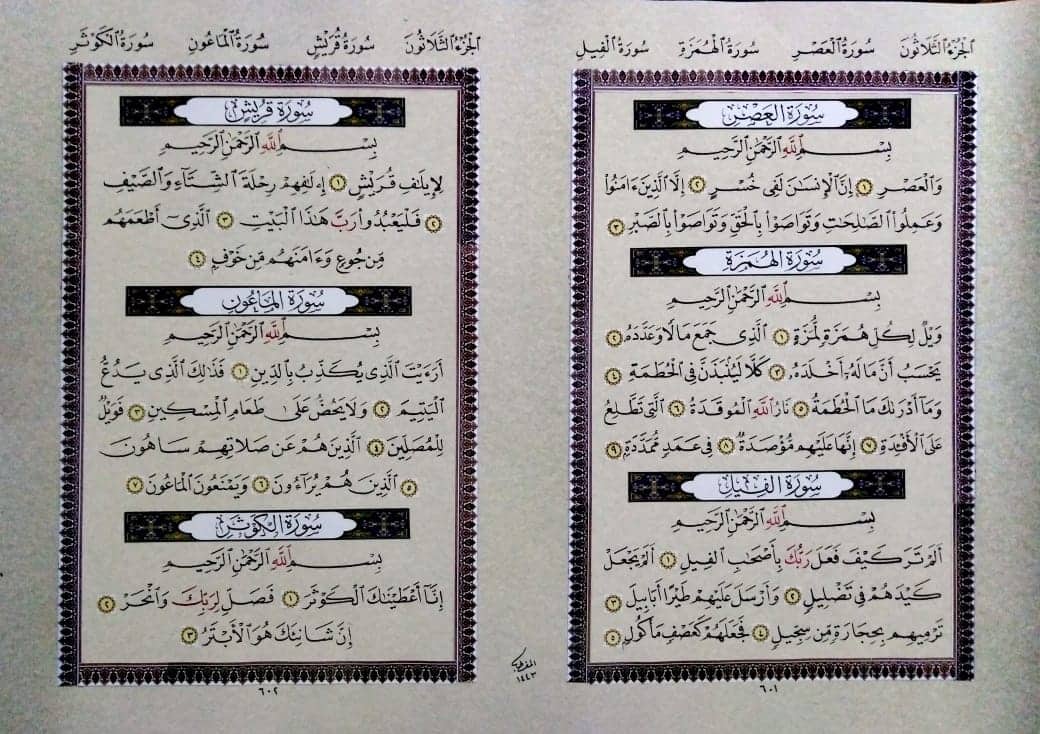 الجزء الثلاثون سورة العصر سورة الهمزة سورة الفيل
سورة العصر
بسم الله الرحمن الرحيم
وَالْعَصْرِ ١ إِنَّ الْإِنسَٰنَ لَفِي خُسْرٍ ٢ إِلَّا الَّذِينَ ءَامَنُوا
وَعَمِلُوا الصَّٰلِحَٰتِ وَتَوَاصَوْا بِالْحَقِّ وَتَوَاصَوْا بِالصَّبْرِ ٣
سورة الهمزة
بسم الله الرحمن الرحيم
وَيْلٌ لِّكُلِّ هُمَزَةٍ لُّمَزَةٍ ١ الَّذِي جَمَعَ مَالًا وَعَدَّدَهُ ٢
يَحْسَبُ أَنَّ مَالَهُ أَخْلَدَهُ ٣ كَلَّا لَيُنبَذَنَّ فِي الْحُطَمَةِ ٤
وَمَا أَدْرَىٰكَ مَا الْحُطَمَةُ ٥ نَارُ اللَّهِ الْمُوقَدَةُ ٦ الَّتِي تَطَّلِعُ
عَلَى الْأَفْـِٔدَةِ ٧ إِنَّهَا عَلَيْهِم مُّؤْصَدَةٌ ٨ فِي عَمَدٍ مُّمَدَّدَةٍ ٩
سورة الفيل
بسم الله الرحمن الرحيم
أَلَمْ تَرَ كَيْفَ فَعَلَ رَبُّكَ بِأَصْحَٰبِ الْفِيلِ ١ أَلَمْ يَجْعَلْ
كَيْدَهُمْ فِي تَضْلِيلٍ ٢ وَأَرْسَلَ عَلَيْهِمْ طَيْرًا أَبَابِيلَ ٣
تَرْمِيهِم بِحِجَارَةٍ مِّن سِجِّيلٍ ٤ فَجَعَلَهُمْ كَعَصْفٍ مَّأْكُولٍ ٥
٦٠١
الجزء الثلاثون سورة قريش سورة الماعون سورة الكوثر
سورة قريش
بسم الله الرحمن الرحيم
لِإِيلَٰفِ قُرَيْشٍ ١ إِۦلَٰفِهِمْ رِحْلَةَ الشِّتَاءِ وَالصَّيْفِ
٢ فَلْيَعْبُدُوا رَبَّ هَٰذَا الْبَيْتِ ٣ الَّذِي أَطْعَمَهُم
مِّن جُوعٍ وَءَامَنَهُم مِّنْ خَوْفٍ ٤
سورة الماعون
بسم الله الرحمن الرحيم
أَرَءَيْتَ الَّذِي يُكَذِّبُ بِالدِّينِ ١ فَذَٰلِكَ الَّذِي يَدُعُّ
الْيَتِيمَ ٢ وَلَا يَحُضُّ عَلَىٰ طَعَامِ الْمِسْكِينِ ٣ فَوَيْلٌ
لِّلْمُصَلِّينَ ٤ الَّذِينَ هُمْ عَن صَلَاتِهِمْ سَاهُونَ
٥ الَّذِينَ هُمْ يُرَاءُونَ ٦ وَيَمْنَعُونَ الْمَاعُونَ ٧
سورة الكوثر
بسم الله الرحمن الرحيم
إِنَّا أَعْطَيْنَٰكَ الْكَوْثَرَ ١ فَصَلِّ لِرَبِّكَ وَانْحَرْ ٢
إِنَّ شَانِئَكَ هُوَ الْأَبْتَرُ ٣
٦٠٢
١٤٤٣